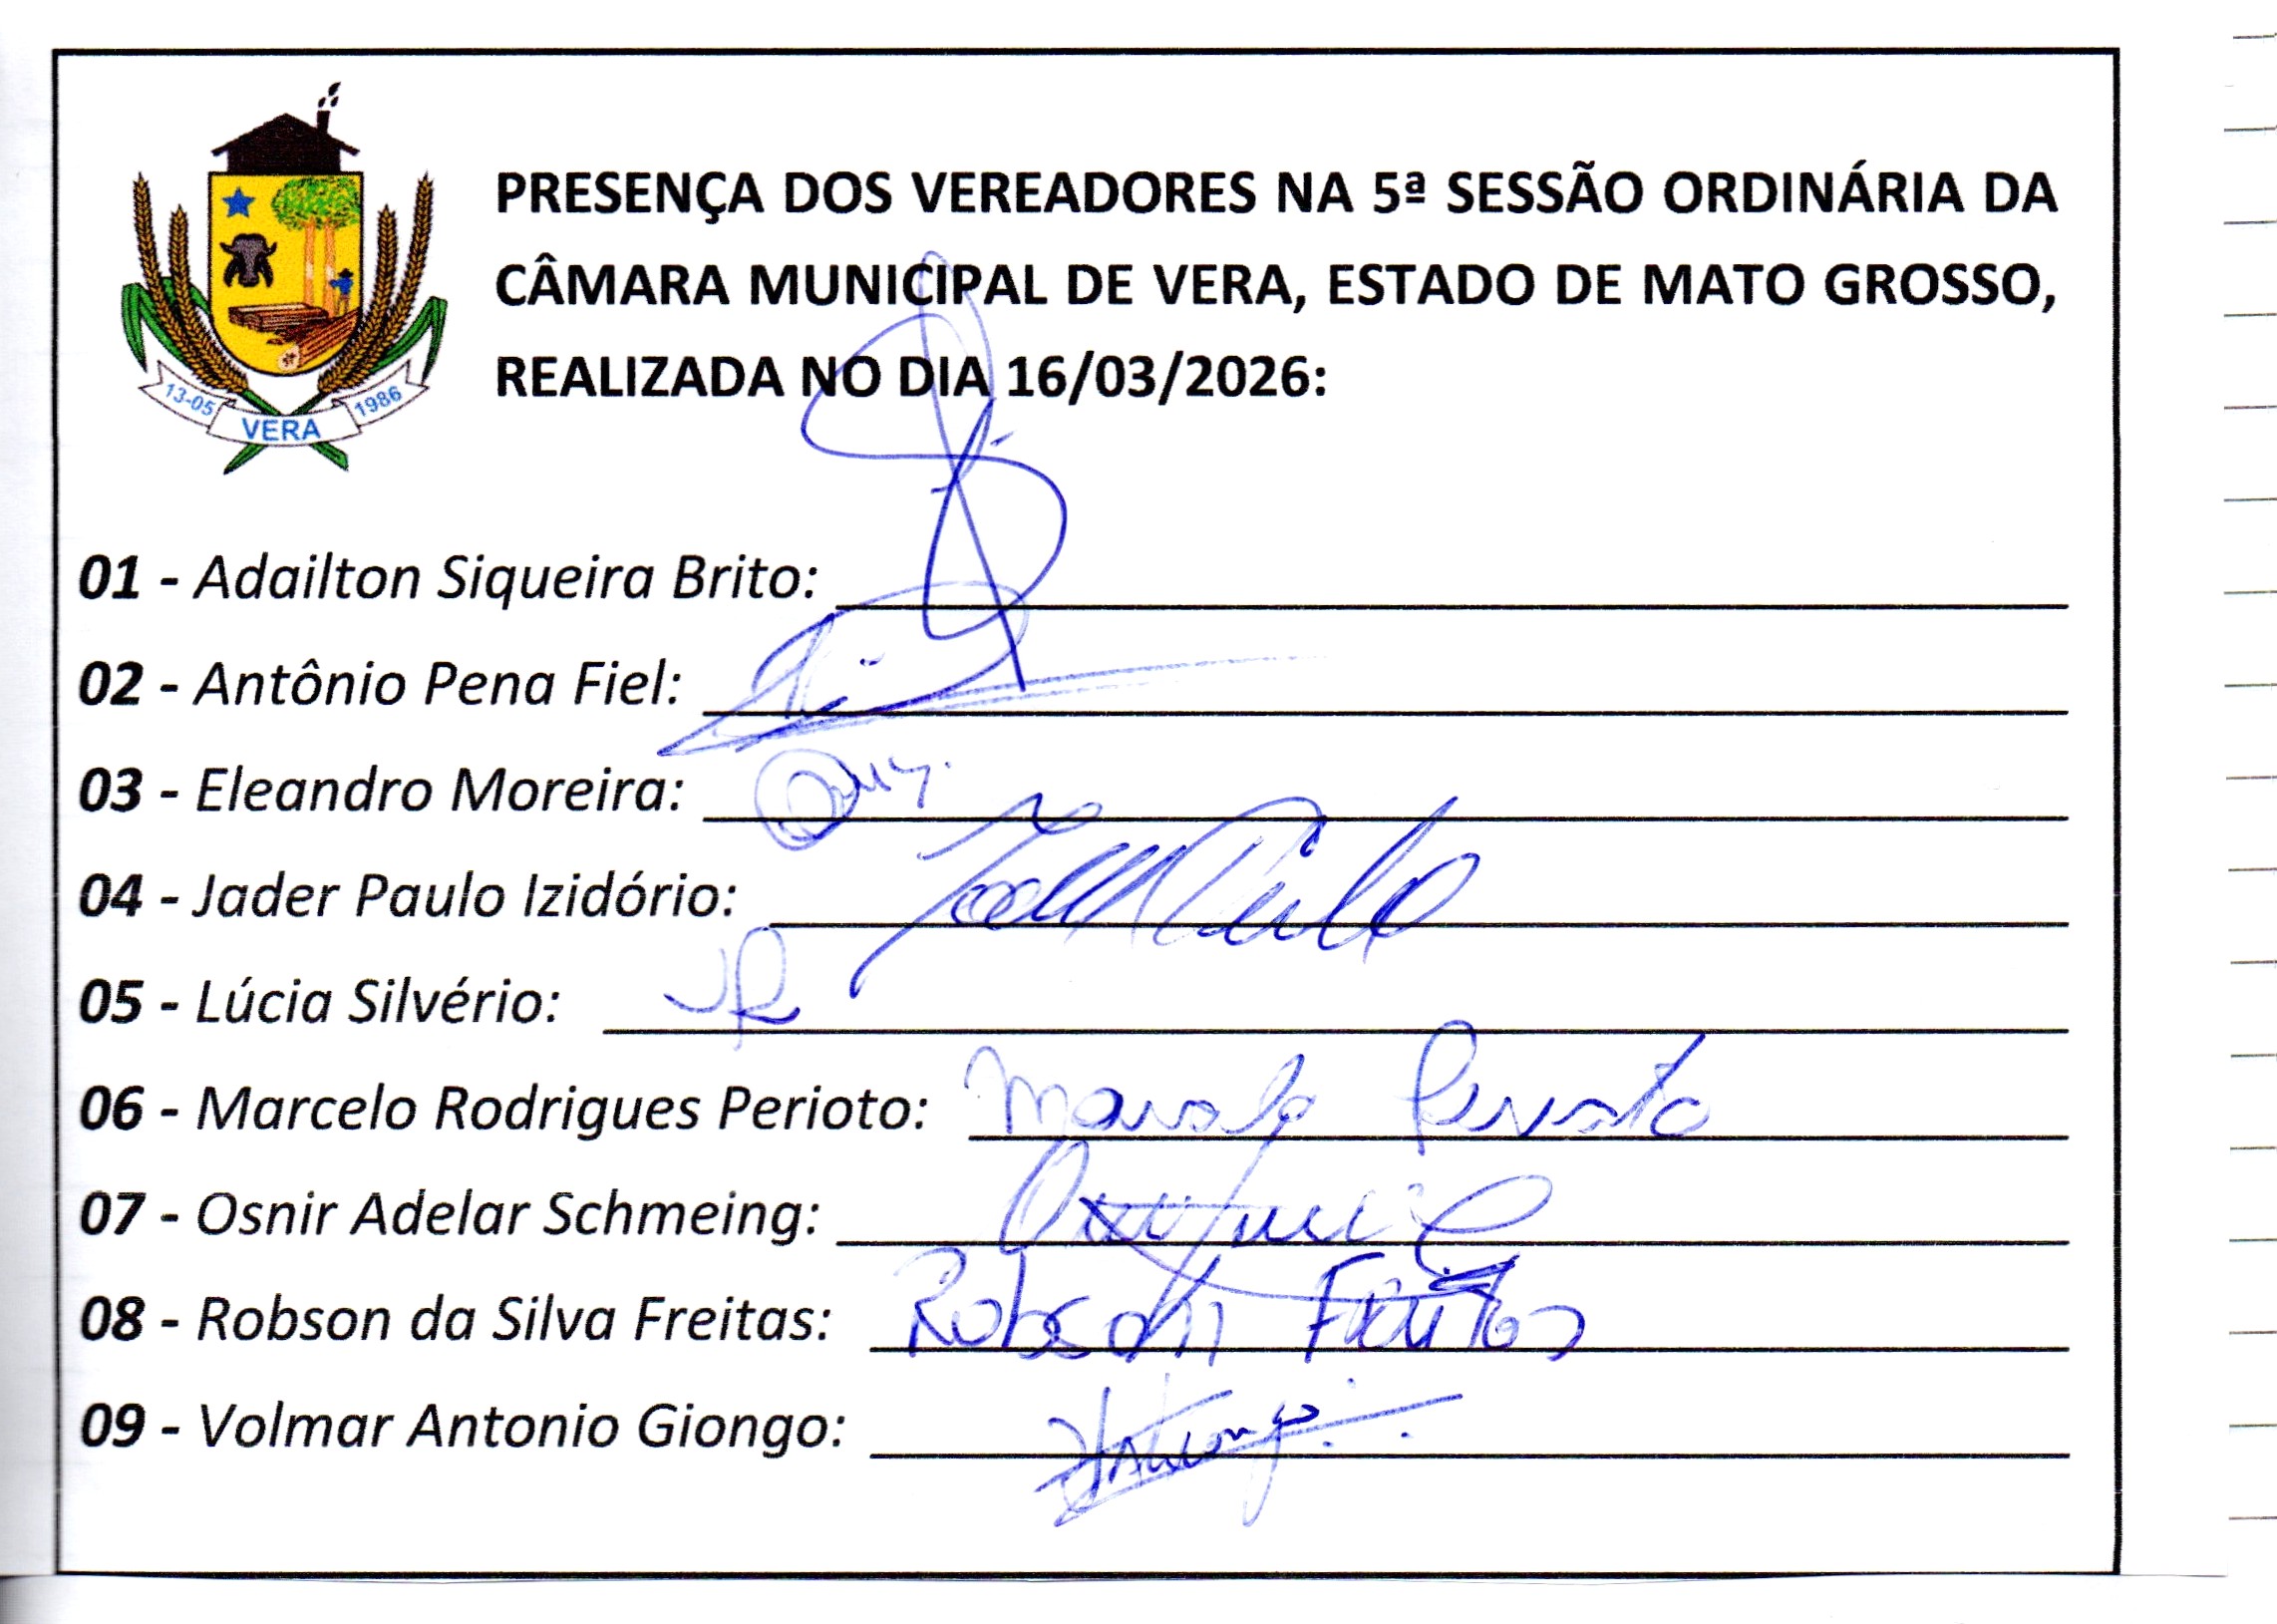 PRESENÇA DOS VEREADORES NA 5ª SESSÃO ORDINÁRIA DA
CÂMARA MUNICIPAL DE VERA, ESTADO DE MATO GROSSO,
REALIZADA NO DIA 16/03/2026:
13-05 VERA 1986
01 - Adailton Siqueira Brito:
02 - Antônio Pena Fiel:
03 - Eleandro Moreira:
04 - Jader Paulo Izidório:
05 - Lúcia Silvério:
06 - Marcelo Rodrigues Perioto:
07 - Osnir Adelar Schmeing:
08 - Robson da Silva Freitas: Robson Freitas
09 - Volmar Antonio Giongo: